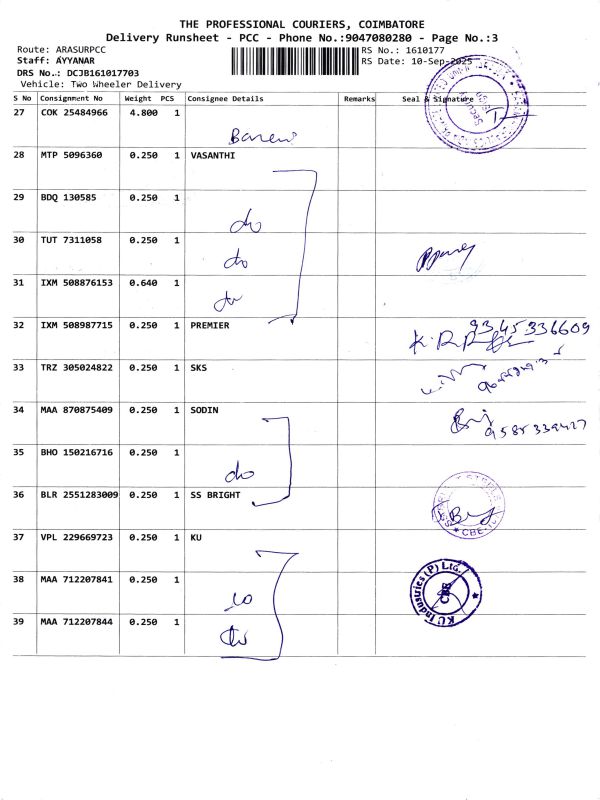 THE PROFESSIONAL COURIERS, COIMBATORE
Delivery Runsheet - PCC - Phone No.:9047080280 - Page No.:3
Route: ARASURPCC
RS No.: 1610177
Staff: AYYANAR
RS Date: 10-Sep-2025
DRS No.: DCJB161017703
Vehicle: Two Wheeler Delivery
S No Consignment No Weight PCS Consignee Details Remarks Seal & Signature
27 COK 25484966 4.800 1
28 MTP 5096360 0.250 1 VASANTHI
29 BDQ 130585 0.250 1
do
30 TUT 7311058 0.250 1
do
31 IXM 508876153 0.640 1
do
32 IXM 508987715 0.250 1 PREMIER
9345336609
33 TRZ 305024822 0.250 1 SKS
34 MAA 870875409 0.250 1 SODIN
9585339427
35 BHO 150216716 0.250 1
do
36 BLR 2551283009 0.250 1 SS BRIGHT
CBE
37 VPL 229669723 0.250 1 KU
38 MAA 712207841 0.250 1
do
KU Industries (P) Ltd.
CBE
39 MAA 712207844 0.250 1
do